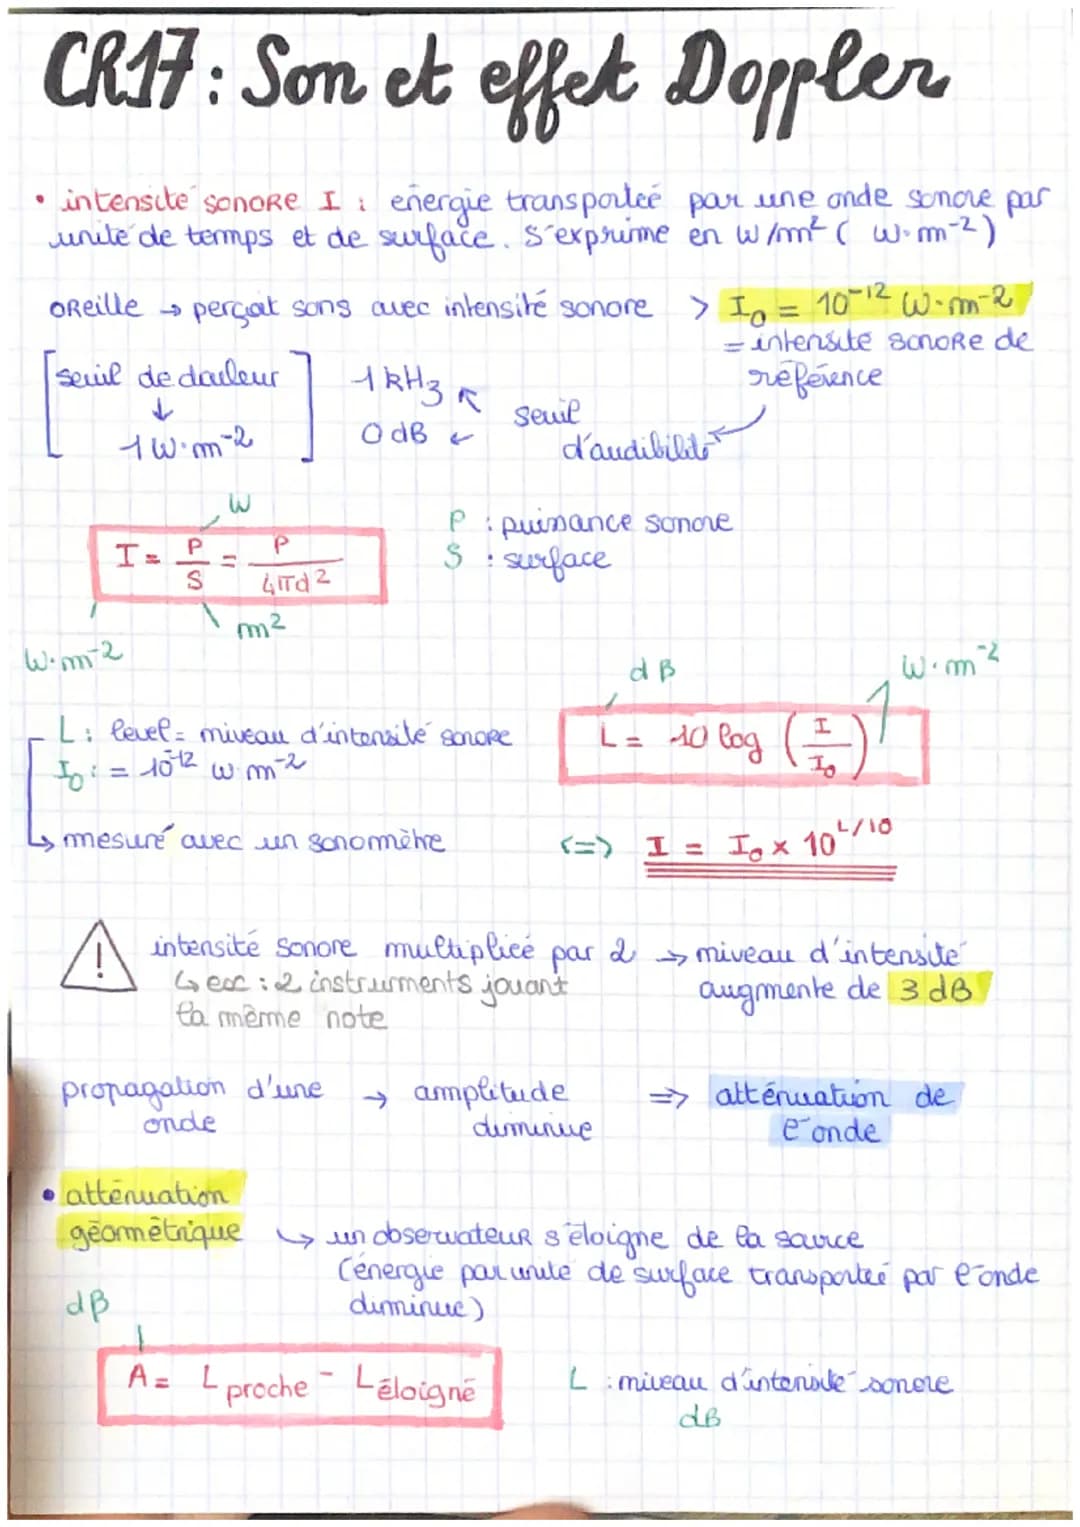 CR17 : Son et effet Doppler
• intensité sonore I : énergie transportée par une onde sonore par
unité de temps et de surface. S'exprime en W/m² ( W·m⁻²)
oreille → perçoit sons avec intensité sonore > I₀ = 10⁻¹² W·m⁻²
= intensité sonore de
référence
[seuil de douleur ↓ 1 W·m⁻²]
1 kHz
0 dB
seuil
d'audibilité
W
I = P/S = P/4πd²
m²
W·m⁻²
P : puissance sonore
S : surface
dB
W·m⁻²
L = 10 log (I/I₀)
L : level = niveau d'intensité sonore
I₀ : = 10⁻¹² W m⁻²
↳ mesuré avec un sonomètre
<=> I = I₀ × 10^L/10
! intensité sonore multipliée par 2 → niveau d'intensité
augmente de 3 dB
↳ ex : 2 instruments jouant
la même note
propagation d'une → amplitude => atténuation de
onde diminue l'onde
• atténuation
géométrique ↳ un observateur s'éloigne de la source
(énergie par unité de surface transportée par l'onde
diminue)
dB
A = L proche - L éloigné
L : niveau d'intensité sonore
dB